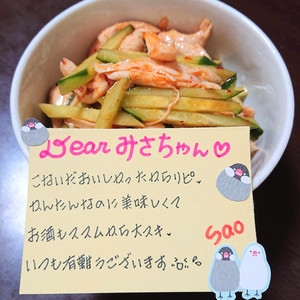 Dear みさちゃん♡
こないだおいしかったからリピ♥
かんたんなのに美味しくて
お酒もススムから大スキ♥
いつも有難うございます
sao